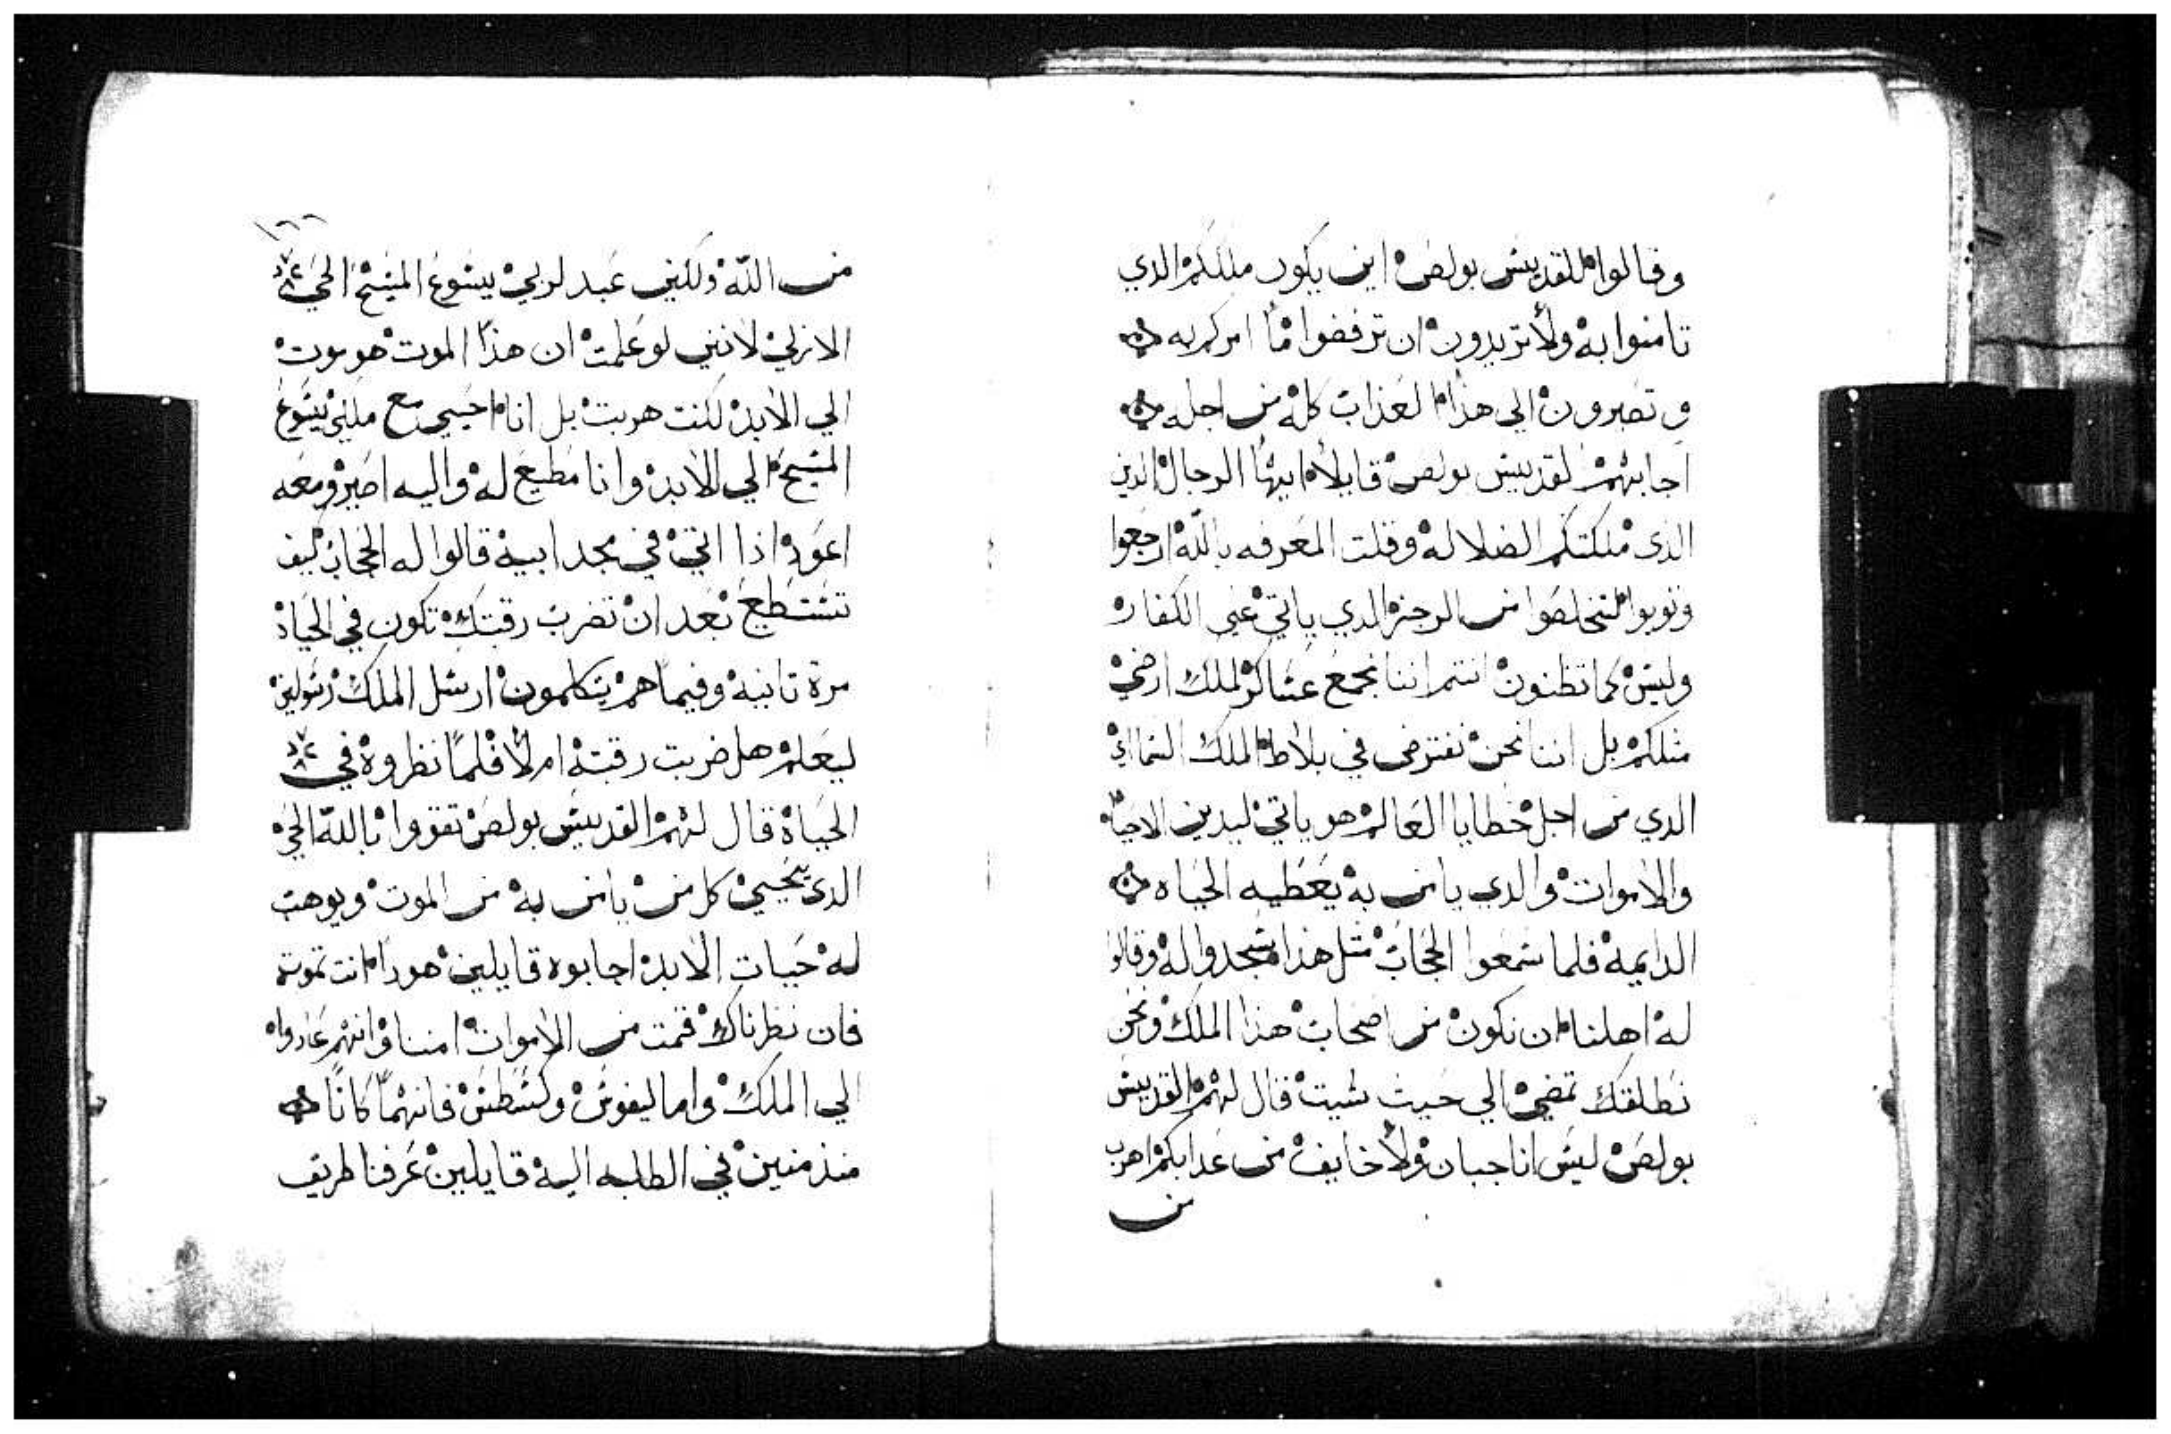 وقالوا للقديس بولص اين يكون ملككم الدي
تامنوا به ولا تريدون ان ترفضوا ما امركم به
و تصبرون الي هذا العذاب كله من اجله
اجابهم القديس بولص قايلا ايها الرجال الدين
الذي ملكتكم الضلاله وقلت المعرفه بالله ارجعوا
وتوبوا لتخلصوا من الرجز الدي ياتي علي الكفار
وليس كما تظنون انتم اننا نجمع عساكر لملك ارضي
مثلكم بل اننا نحن نفترض في بلاط الملك السماي
الدي من اجل خطايا العالم هو ياتي ليدين الاحيا
والاموات والدي يامن به يعطيه الحياه
الدايمه فلما سمعوا الحجاب مثل هذا سجدوا له وقالوا
له اهلنا ان نكون من اصحاب هذا الملك ونحن
نطلقك تمضي الي حيث شيت فقال لهم القديس
بولص ليس انا جبان ولا خايف من عدابكم اهرب
من
١٦٦
من الله ولكني عبد لربي يسوع المسيح الحي
الازلي لانني لو علمت ان هذا الموت هو موت
الي الابد لكنت هربت بل انا احيي مع ملكي يسوع
المسيح الي الابد وانا مطيع له واليه اصير ومعه
اعود اذا اتي في مجد ابيه قالوا له الحجاب كيف
تستطيع بعد ان تضرب رقبتك تكون في الحياة
مرة تانيه وفيما هم يتكلمون ارسل الملك رسولين
ليعلم هل ضربت رقبته ام لا فلما نظروه في
الحياة قال لهم القديس بولص تقووا بالله الحي
الدي يحيي كل من يامن به من الموت ويوهب
له حيات الابد اجابوه قايلين هودا انت تموت
فان نظرناك قمت من الاموات امنا وانهم عادوا
الي الملك واما ليفوس وكسطس فانهما كانا
منذمنين في الطلبه اليه قايلين عرفنا طريق